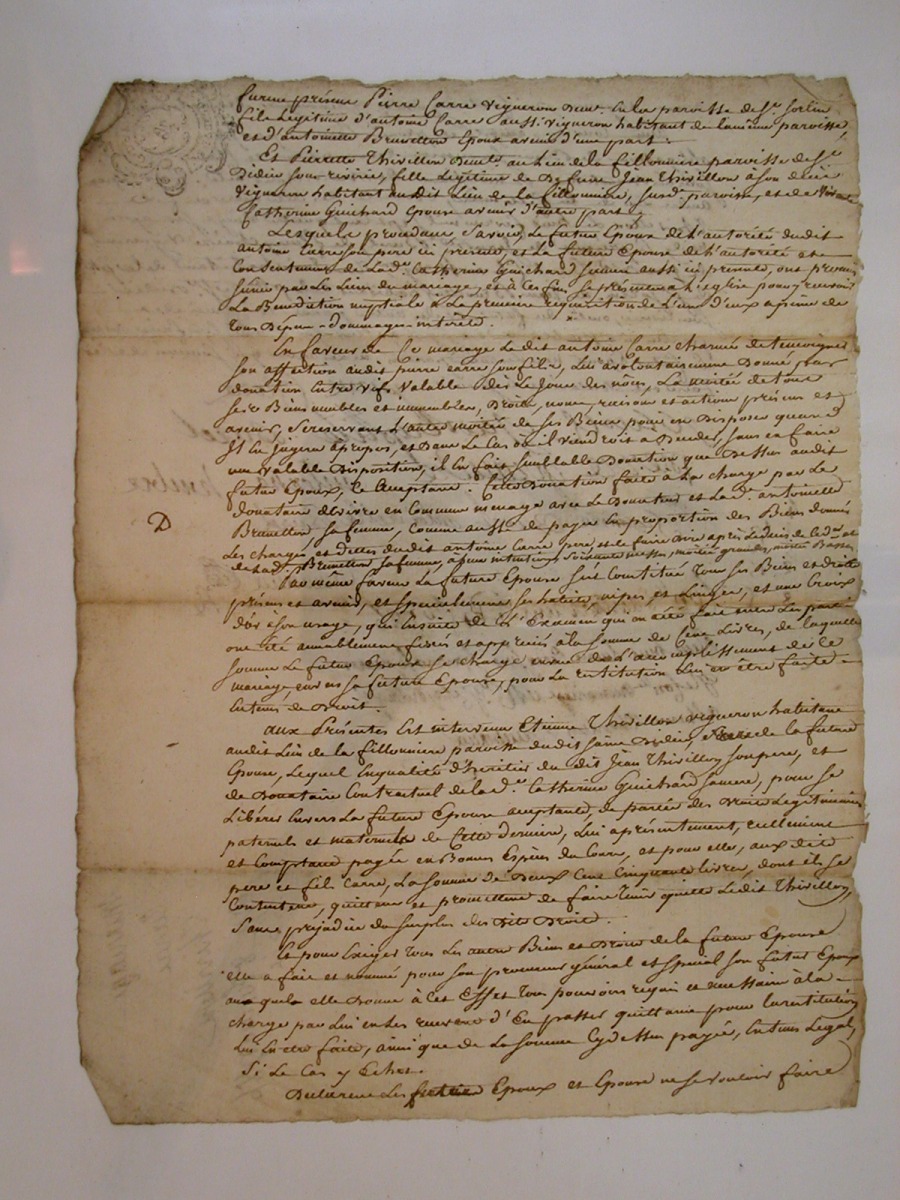 furent présens Pierre Carre vigneron demt. en la paroisse de St. Sorlin
fils Légitime d'antoine Carre aussi vigneron habitant de la même paroisse,
et d'antoinette Brunetton Epoux avenir d'une part.
Et Pierrette Thivillon demte. au lieu de la fillonniere paroisse de St.
Didier sous riviere, fille Légitime de defunt Jean Thivillon à son deces
vigneron habitant audit Lieu de la fillonniere, susde. paroisse, et de vivante
Catherine Guichard Epouse avenir d'autre part;
Lesquels procedans, Savoir, Le futur Epoux de l'autorité dudit
antoine Carre son pere ici présent, et La future Epouse de l'autorité et
Consentement de Lade. Catherine Guichard sa mere aussi ici présente, ont promis
s'unir par les Liens du mariage, et à Ces fins se présenter à l'église pour y recevoir
La Bénédiction nuptiale à La premiere réquisition de L'un d'eux à peine de
tous dépens dommages interêts.
En faveur de Ce mariage Le dit antoine Carre charmé de temoigner
son affection audit pierre carre son fils, Lui a volontairement Donné par
donation entre vifs valable dès Le Jour des nôces, La moitié de tous
ses Biens meubles et immeubles, Droits, noms, raisons et actions présens et
avenirs, se reservant L'autre moitié de ses Biens pour en Disposer quand
Il En jugera àpropos, et dans Le Cas où il viendroit à Deceder, sans en faire
une valable Disposition, il en fait semblable Donation que Dessus audit
futur Epoux, ce acceptant. Cette Donation faite à La charge par Le
donataire de vivre en Commun menage avec Le Donateur et Lade. antoinette
Brunetton sa femme, Comme aussi de payer en proportion des Biens donnés
Les charges et dettes dudit antoine Carre pere, et de faire dire après Le deces de Ledr. et
de Lade. Brunetton sa femme, à Leur intention, soixante messes, moitié grandes, moitié Basses
Par même faveur La future Epouse s'est Constitué tous ses Biens et droits
présens et avenirs, et spécialement ses habits, nipes, et Linges, et une Croix
d'or à son usage, qui Ensuite de L'Examen qui en a été fait entre Les parties
ont été amiablement fixés et appréciés à la somme de Cent Livres, de laquelle
somme Le futur Epoux se charge envers de L'accomplissement de Ce
mariage, envers sa future Epouse, pour La restitution Lui en être faite
En tems de Droit.
aux Présentes Est intervenu Etienne Thivillon vigneron habitant
audit Lieu de la fillonniere paroisse dudit saint Didier, frere de la future
Epouse, Lequel En qualité d'héritier du dit Jean Thivillon son pere, et
de Donataire Contractuel de Lade. Catherine Guichard sa mere, pour se
Libérer Envers La future Epouse acceptante, de partie des Droits Legitimaires
paternels et maternels de Cette derniere, Lui a présentement, réellement
et Comptant payé en Bonnes Espèces du Cours, et pour elle, aux dits
pere et fils Carre, La somme de Deux Cent Cinquante livres, dont ils se
Contentent, quittent et promettent de faire tenir quitte Ledit Thivillon,
sans préjudice du surplus des dits Droits.
Et pour Exiger tous Les autres Biens et Droits de la future Epouse
elle a fait et nommé pour son procureur général et spécial son futur Epoux
auquel elle Donne à Cet Effet tous pouvoirs requis et necessaires à la
charge par Lui en Les recevant d'En passer quittance pour La restitution
Lui En être faite, ainsi que de La somme Cydessus payée, En tems Legal,
si Le Cas y Echet.
Déclarent Les Epoux et Epouse ne se vouloir faire
D